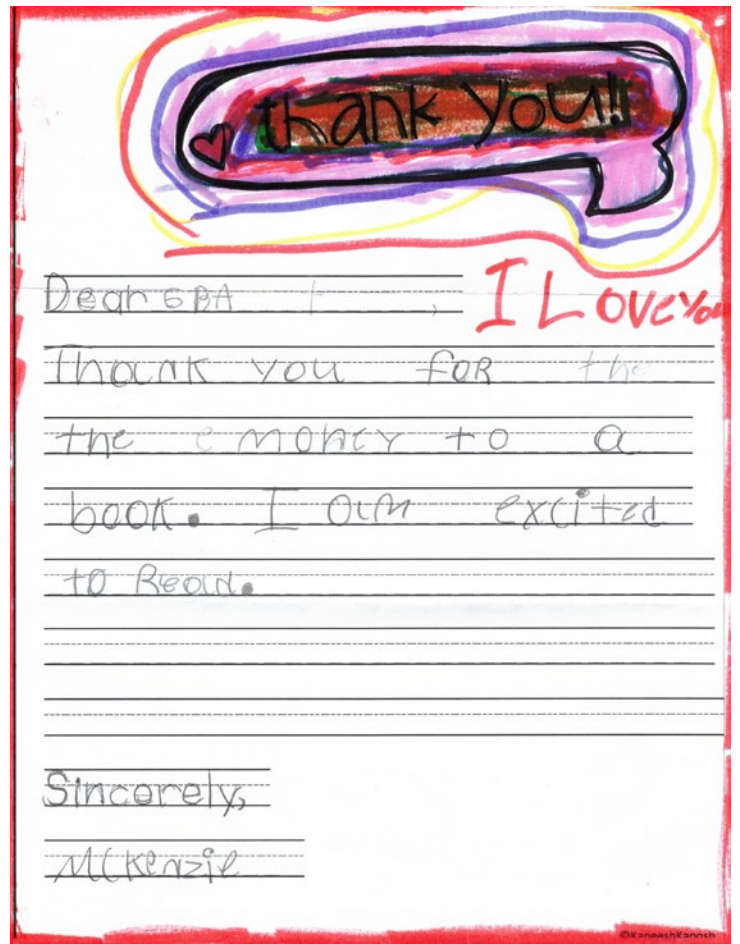 thank you!!
Dear GBA ,
I Love You
Thank you for the
the money to a
book. I am excited
to Read.
Sincerely,
McKenzie
©KaneeshKannsh